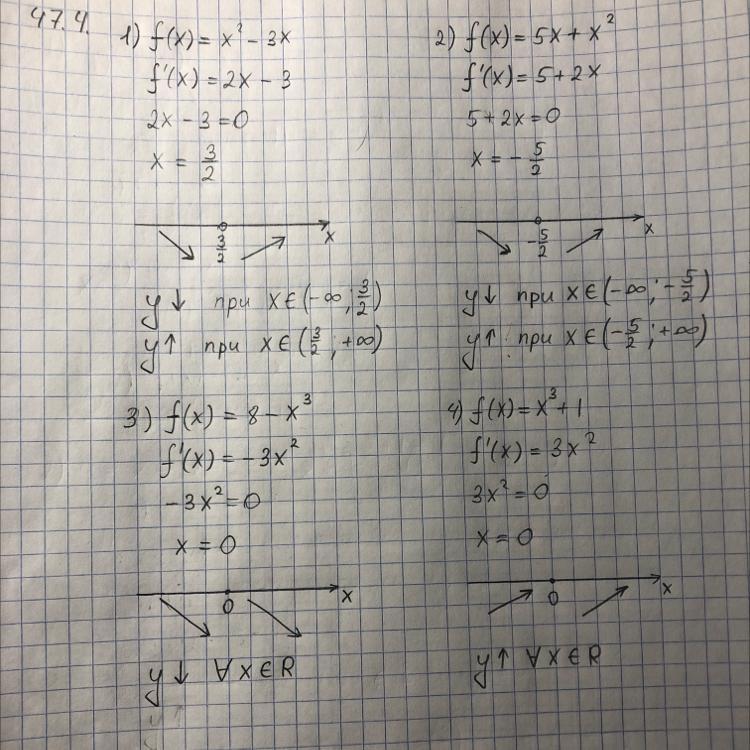 47.4.
1) f(x) = x² - 3x
f'(x) = 2x - 3
2x - 3 = 0
x = 3/2
3/2 x
y↓ при x∈(-∞; 3/2)
y↑ при x∈(3/2; +∞)
2) f(x) = 5x + x²
f'(x) = 5 + 2x
5 + 2x = 0
x = -5/2
-5/2 x
y↓ при x∈(-∞; -5/2)
y↑ при x∈(-5/2; +∞)
3) f(x) = 8 - x³
f'(x) = -3x²
-3x² = 0
x = 0
0 x
y↓ ∀x∈R
4) f(x) = x³ + 1
f'(x) = 3x²
3x² = 0
x = 0
0 x
y↑ ∀x∈R